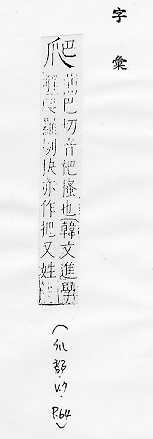 字彙
爬
蒲巴切音杷搔也韓文進學
解爬羅剔抉亦作把又姓
(爪部.V.7.P.64)